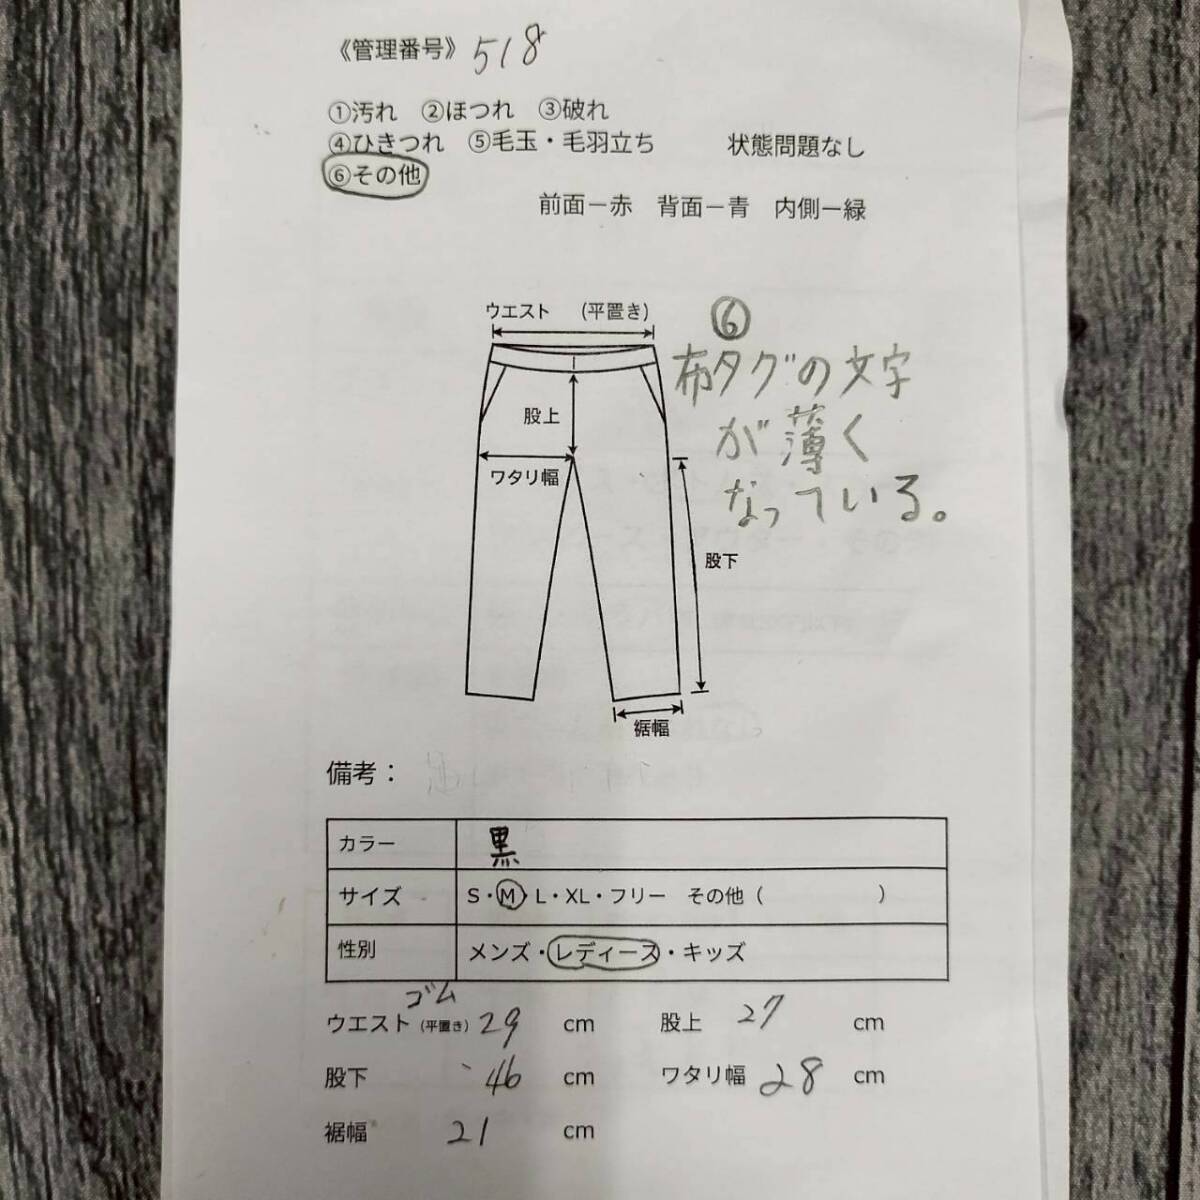 《管理番号》 518
①汚れ ②ほつれ ③破れ
④ひきつれ ⑤毛玉・毛羽立ち 状態問題なし
⑥その他
前面ー赤 背面ー青 内側ー緑
ウエスト (平置き)
⑥
布タグの文字
が薄く
なっている。
股上
ワタリ幅
股下
裾幅
備考：
カラー 黒
サイズ S・M・L・XL・フリー その他（ ）
性別 メンズ・レディース・キッズ
ゴム
ウエスト（平置き） 29 cm 股上 27 cm
股下 46 cm ワタリ幅 28 cm
裾幅 21 cm